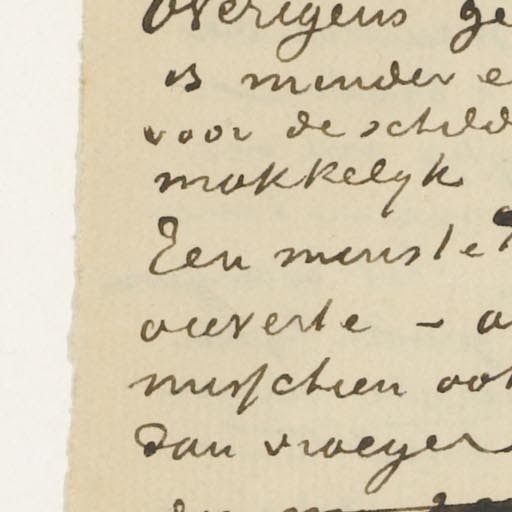 Overigens ge
is minder e
voor de schild
makkelyk
Een minste
ouverte – o
misschien ook
dan vroeger